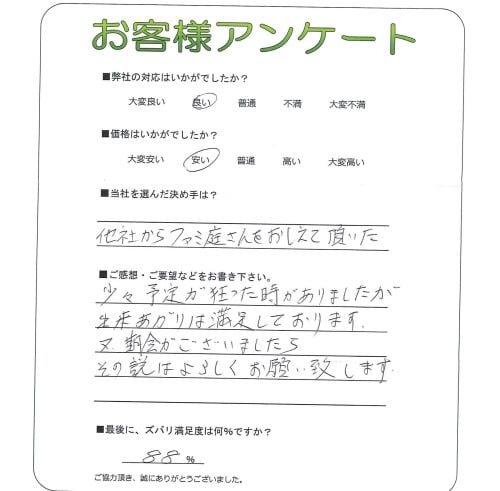 お客様アンケート
■弊社の対応はいかがでしたか?
大変良い 良い 普通 不満 大変不満
■価格はいかがでしたか?
大変安い 安い 普通 高い 大変高い
■当社を選んだ決め手は?
他社からファミ庭さんをおしえて頂いた
■ご感想・ご要望などをお書き下さい。
少々予定が狂った時がありましたが
出来あがりは満足しております.
又、機会がございましたら
その説はよろしくお願い致します.
■最後に、ズバリ満足度は何%ですか?
88 %
ご協力頂き、誠にありがとうございました。